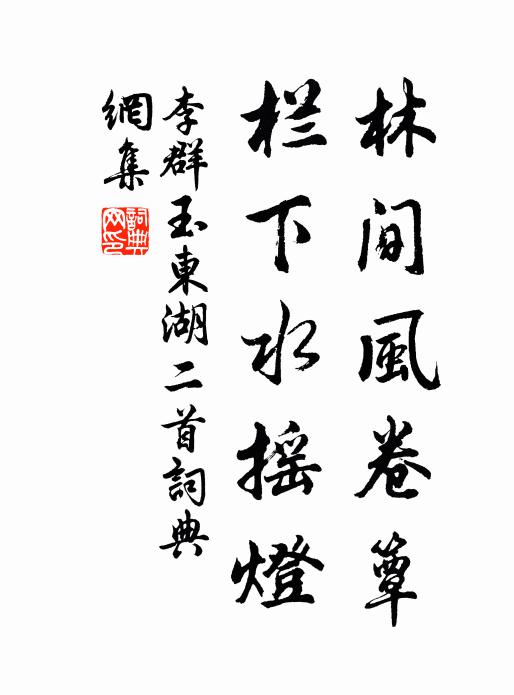 林間風卷簟
栏下水摇燈
李群玉東湖二首詞典
網集
詞典网印